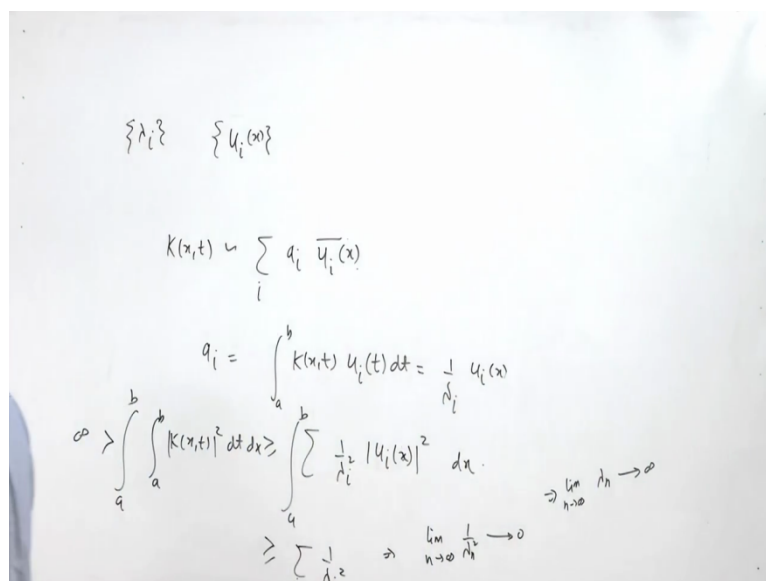 {λ_i} {u_i(x)}
K(x,t) ~ ∑_i a_i \overline{u_i}(x)
a_i = ∫_a^b K(x,t) u_i(t) dt = 1/λ_i u_i(x)
∞ > ∫_a^b ∫_a^b |K(x,t)|^2 dt dx ≥ ∫_a^b ∑ 1/λ_i^2 |u_i(x)|^2 dx.
≥ ∑ 1/λ_i^2 ⇒ lim_{n→∞} 1/λ_n^2 → 0 ⇒ lim_{n→∞} λ_n → ∞